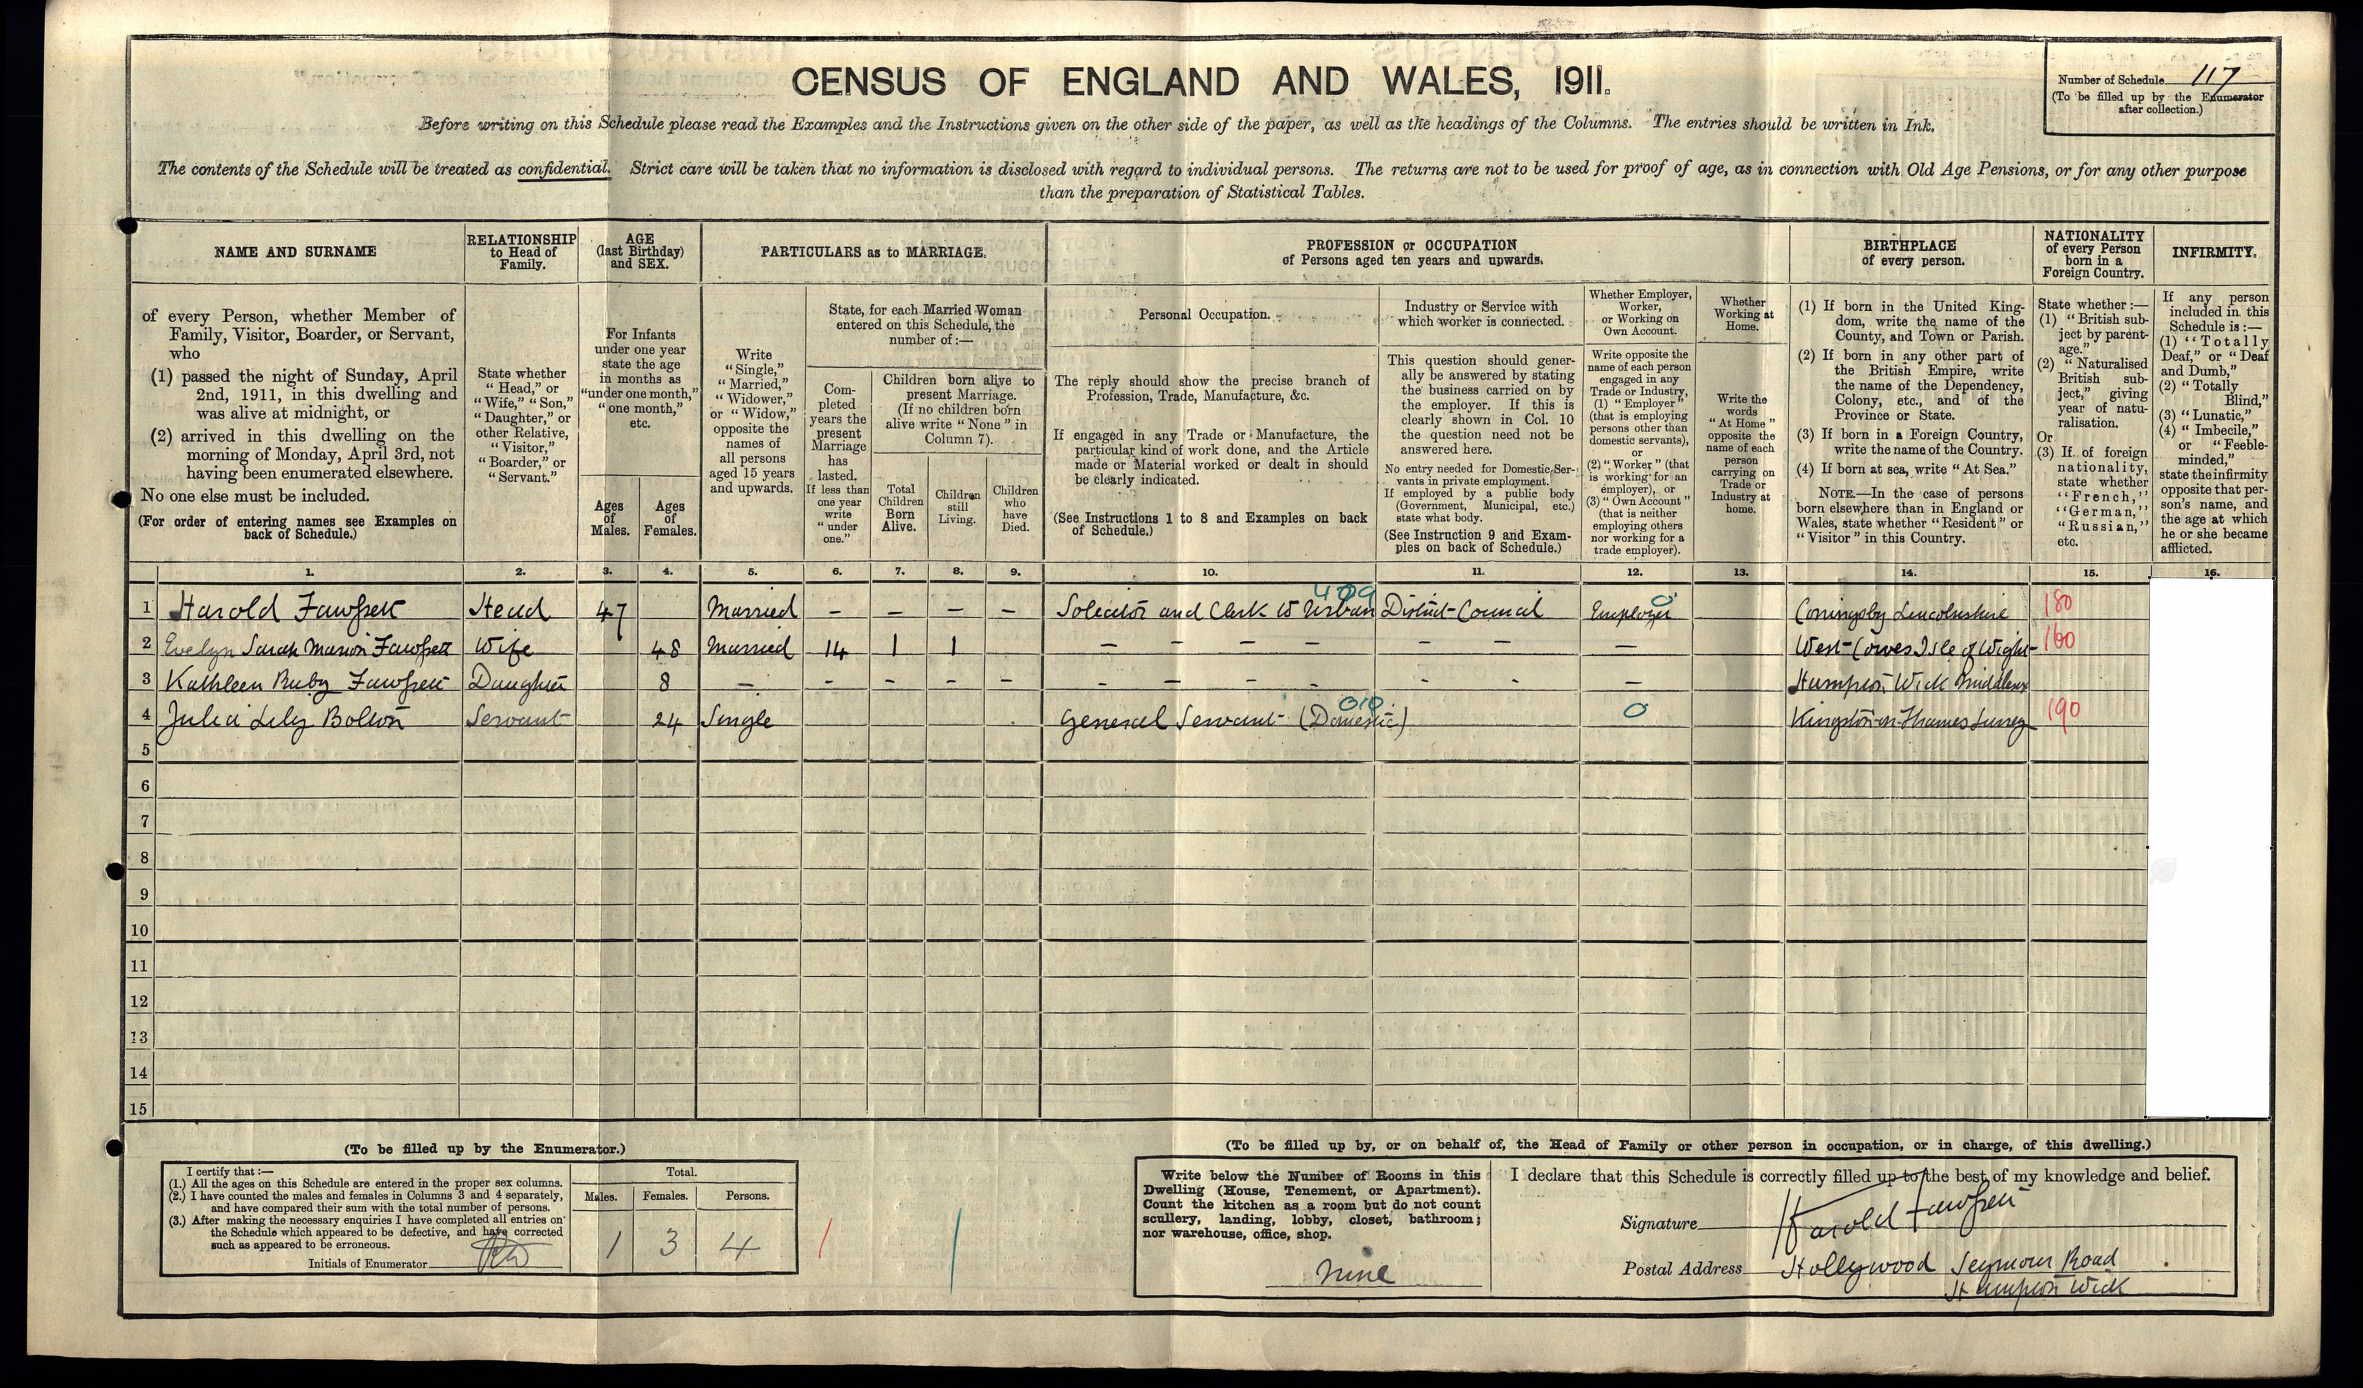 CENSUS OF ENGLAND AND WALES, 1911.
Number of Schedule 117
(To be filled up by the Enumerator
after collection.)
Before writing on this Schedule please read the Examples and the Instructions given on the other side of the paper, as well as the headings of the Columns. The entries should be written in Ink.
The contents of the Schedule will be treated as confidential. Strict care will be taken that no information is disclosed with regard to individual persons. The returns are not to be used for proof of age, as in connection with Old Age Pensions, or for any other purpose
than the preparation of Statistical Tables.
NAME AND SURNAME
of every Person, whether Member of
Family, Visitor, Boarder, or Servant,
who
(1) passed the night of Sunday, April
2nd, 1911, in this dwelling and
was alive at midnight, or
(2) arrived in this dwelling on the
morning of Monday, April 3rd, not
having been enumerated elsewhere.
No one else must be included.
(For order of entering names see Examples on
back of Schedule.)
RELATIONSHIP
to Head of
Family.
State whether
"Head," or
"Wife," "Son,"
"Daughter," or
other Relative,
"Visitor,"
"Boarder," or
"Servant."
AGE
(last Birthday)
and SEX.
For Infants
under one year
state the age
in months as
"under one month,"
"one month,"
etc.
Ages
of
Males.
Ages
of
Females.
PARTICULARS as to MARRIAGE.
Write
"Single,"
"Married,"
"Widower,"
or "Widow,"
opposite the
names of
all persons
aged 15 years
and upwards.
State, for each Married Woman
entered on this Schedule, the
number of:—
Com-
pleted
years the
present
Marriage
has
lasted.
If less than
one year
write
"under
one."
Children born alive to
present Marriage.
(If no children born
alive write "None" in
Column 7).
Total
Children
Born
Alive.
Children
still
Living.
Children
who
have
Died.
PROFESSION or OCCUPATION
of Persons aged ten years and upwards.
Personal Occupation.
The reply should show the precise branch of
Profession, Trade, Manufacture, &c.
If engaged in any Trade or Manufacture, the
particular kind of work done, and the Article
made or Material worked or dealt in should
be clearly indicated.
(See Instructions 1 to 8 and Examples on back
of Schedule.)
Industry or Service with
which worker is connected.
This question should gener-
ally be answered by stating
the business carried on by
the employer. If this is
clearly shown in Col. 10
the question need not be
answered here.
No entry needed for Domestic Ser-
vants in private employment.
If employed by a public body
(Government, Municipal, etc.)
state what body.
(See Instruction 9 and Exam-
ples on back of Schedule.)
Whether Employer,
Worker,
or Working on
Own Account.
Write opposite the
name of each person
engaged in any
Trade or Industry,
(1) "Employer"
(that is employing
persons other than
domestic servants),
or
(2) "Worker" (that
is working for an
employer), or
(3) "Own Account"
(that is neither
employing others
nor working for a
trade employer).
Whether
Working at
Home.
Write the
words
"At Home"
opposite the
name of each
person
carrying on
Trade or
Industry at
home.
BIRTHPLACE
of every person.
(1) If born in the United King-
dom, write the name of the
County, and Town or Parish.
(2) If born in any other part of
the British Empire, write
the name of the Dependency,
Colony, etc., and of the
Province or State.
(3) If born in a Foreign Country,
write the name of the Country.
(4) If born at sea, write "At Sea."
NOTE.—In the case of persons
born elsewhere than in England or
Wales, state whether "Resident" or
"Visitor" in this Country.
NATIONALITY
of every Person
born in a
Foreign Country.
State whether:—
(1) "British sub-
ject by parent-
age."
(2) "Naturalised
British sub-
ject," giving
year of natu-
ralisation.
Or
(3) If of foreign
nationality,
state whether
"French,"
"German,"
"Russian,"
etc.
INFIRMITY.
If any person
included in this
Schedule is:—
(1) "Totally
Deaf," or "Deaf
and Dumb,"
(2) "Totally
Blind,"
(3) "Lunatic,"
(4) "Imbecile,"
or "Feeble-
minded,"
state the infirmity
opposite that per-
son's name, and
the age at which
he or she became
afflicted.
1. 2. 3. 4. 5. 6. 7. 8. 9. 10. 11. 12. 13. 14. 15. 16.
1 Harold Fawssett Head 47 Married — — — — Solicitor and Clerk to Urban District Council 409 Employer 0 Coningsby Lincolnshire 180
2 Evelyn Sarah Marion Fawssett Wife 48 Married 14 1 1 — — — — — — — West Cowes Isle of Wight 160
3 Kathleen Ruby Fawssett Daughter 8 — — — — — — — — — - - — Hampton Wick Middlesex
4 Julia Lily Bolton Servant 24 Single General Servant (Domestic) 010 0 Kingston-on-Thames Surrey 190
5
6
7
8
9
10
11
12
13
14
15
(To be filled up by the Enumerator.)
I certify that:—
(1.) All the ages on this Schedule are entered in the proper sex columns.
(2.) I have counted the males and females in Columns 3 and 4 separately,
and have compared their sum with the total number of persons.
(3.) After making the necessary enquiries I have completed all entries on
the Schedule which appeared to be defective, and have corrected
such as appeared to be erroneous.
Initials of Enumerator
Total.
Males. Females. Persons.
1 3 4
(To be filled up by, or on behalf of, the Head of Family or other person in occupation, or in charge, of this dwelling.)
Write below the Number of Rooms in this
Dwelling (House, Tenement, or Apartment).
Count the kitchen as a room but do not count
scullery, landing, lobby, closet, bathroom;
nor warehouse, office, shop.
Nine
I declare that this Schedule is correctly filled up to the best of my knowledge and belief.
Signature Harold Fawssett
Postal Address Hollywood Seymour Road
Hampton Wick